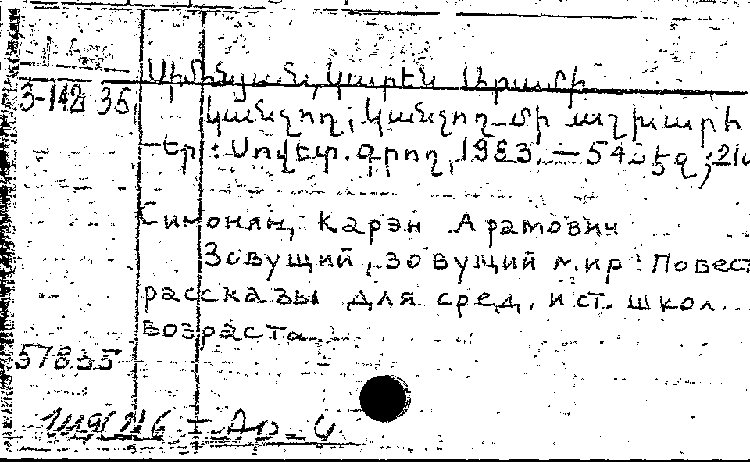 Սիմոնյան, Կարեն Արամի
3-142 35 Կանչող, կանչող մի աշխարհ
Եր.: Սովետ. գրող, 1983. — 54
Симонян, Карэн Арамович
Зовущий, зовущий мир: Повест
рассказы для сред. и ст. школ.
возраста.
57835